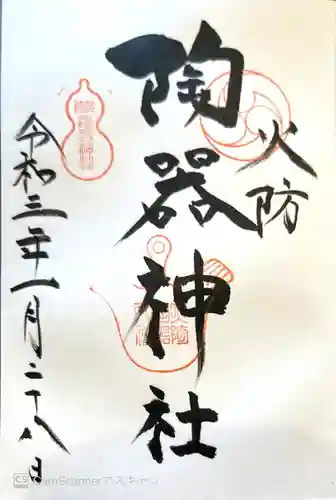 火防
陶器神社
令和三年一月二十八日
CS CamScannerでスキャン